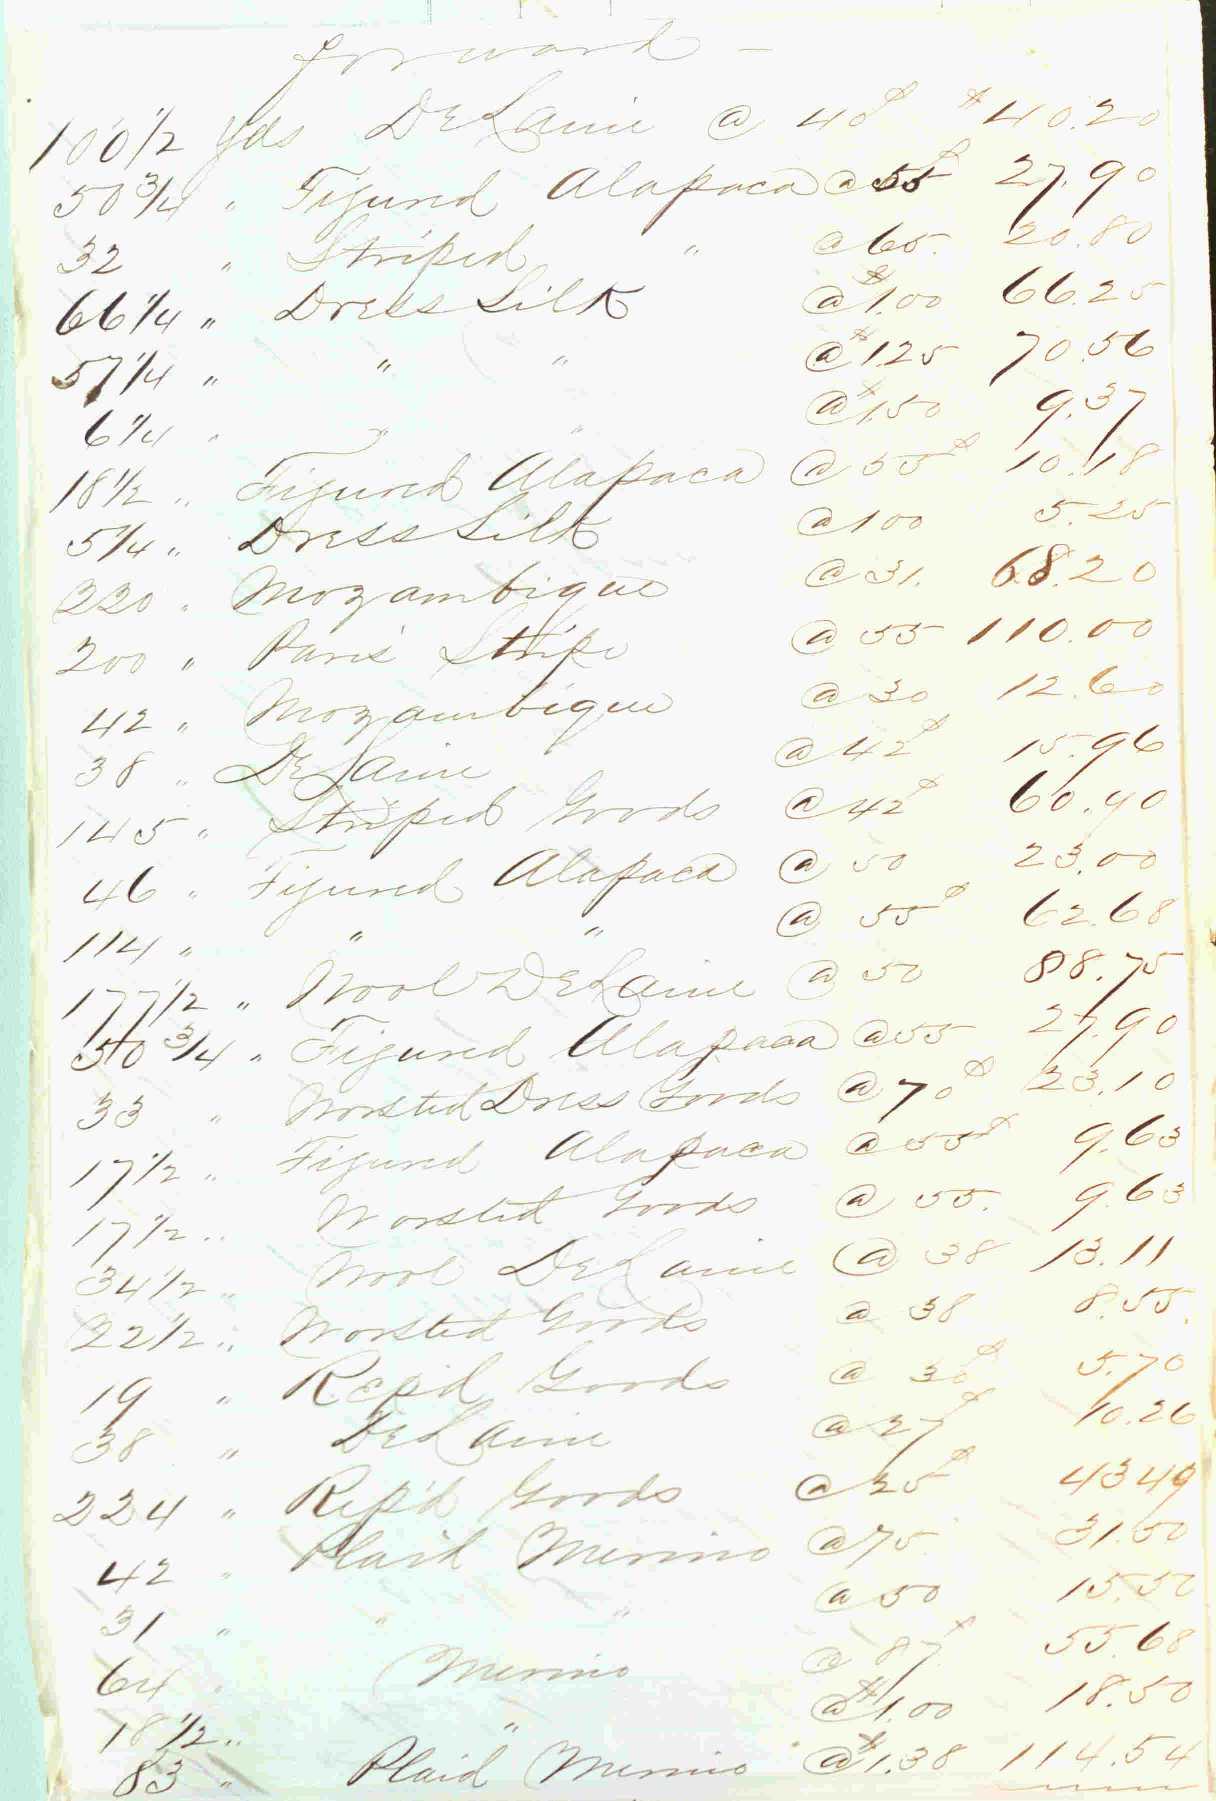 forward –
100 1/2 yds DeLaine @ 40¢ $40.20
50 3/4 " Figured Alapaca @ 55¢ 27.90
32 " Striped " @ 65. 20.80
66 1/4 " Dress Silk @ $1.00 66.25
57 1/4 " " " @ $1.25 70.56
6 1/4 " " " @ $1.50 9.37
18 1/2 " Figured Alapaca @ 55¢ 10.18
5 1/4 " Dress Silk @ 100 5.25
220 " Mozambique @ 31. 68.20
200 " Paris Stripe @ 55 110.00
42 " Mozambique @ 30 12.60
38 " DeLaine @ 42¢ 15.96
145 " Striped Goods @ 42¢ 60.90
46 " Figured Alapaca @ 50 23.00
114 " " " @ 55¢ 62.68
177 1/2 " Wool DeLaine @ 50 88.75
50 3/4 " Figured Alapaca @ 55 27.90
33 " Worsted Dress Goods @ 70¢ 23.10
17 1/2 " Figured Alapaca @ 55¢ 9.63
17 1/2 " Worsted Goods @ 55. 9.63
34 1/2 " Wool DeLaine @ 38 13.11
22 1/2 " Worsted Goods @ 38 8.55.
19 " Rep'd Goods @ 30¢ 5.70
38 " DeLaine @ 27¢ 10.26
224 " Rep'd Goods @ 25¢ 43 49
42 " Plaid Merino @ 75 31.50
31 " " " @ 50 15.50
64 " Merino @ 87¢ 55.68
18 1/2 " " @ $1.00 18.50
83 " Plaid Merino @ $1.38 114.54